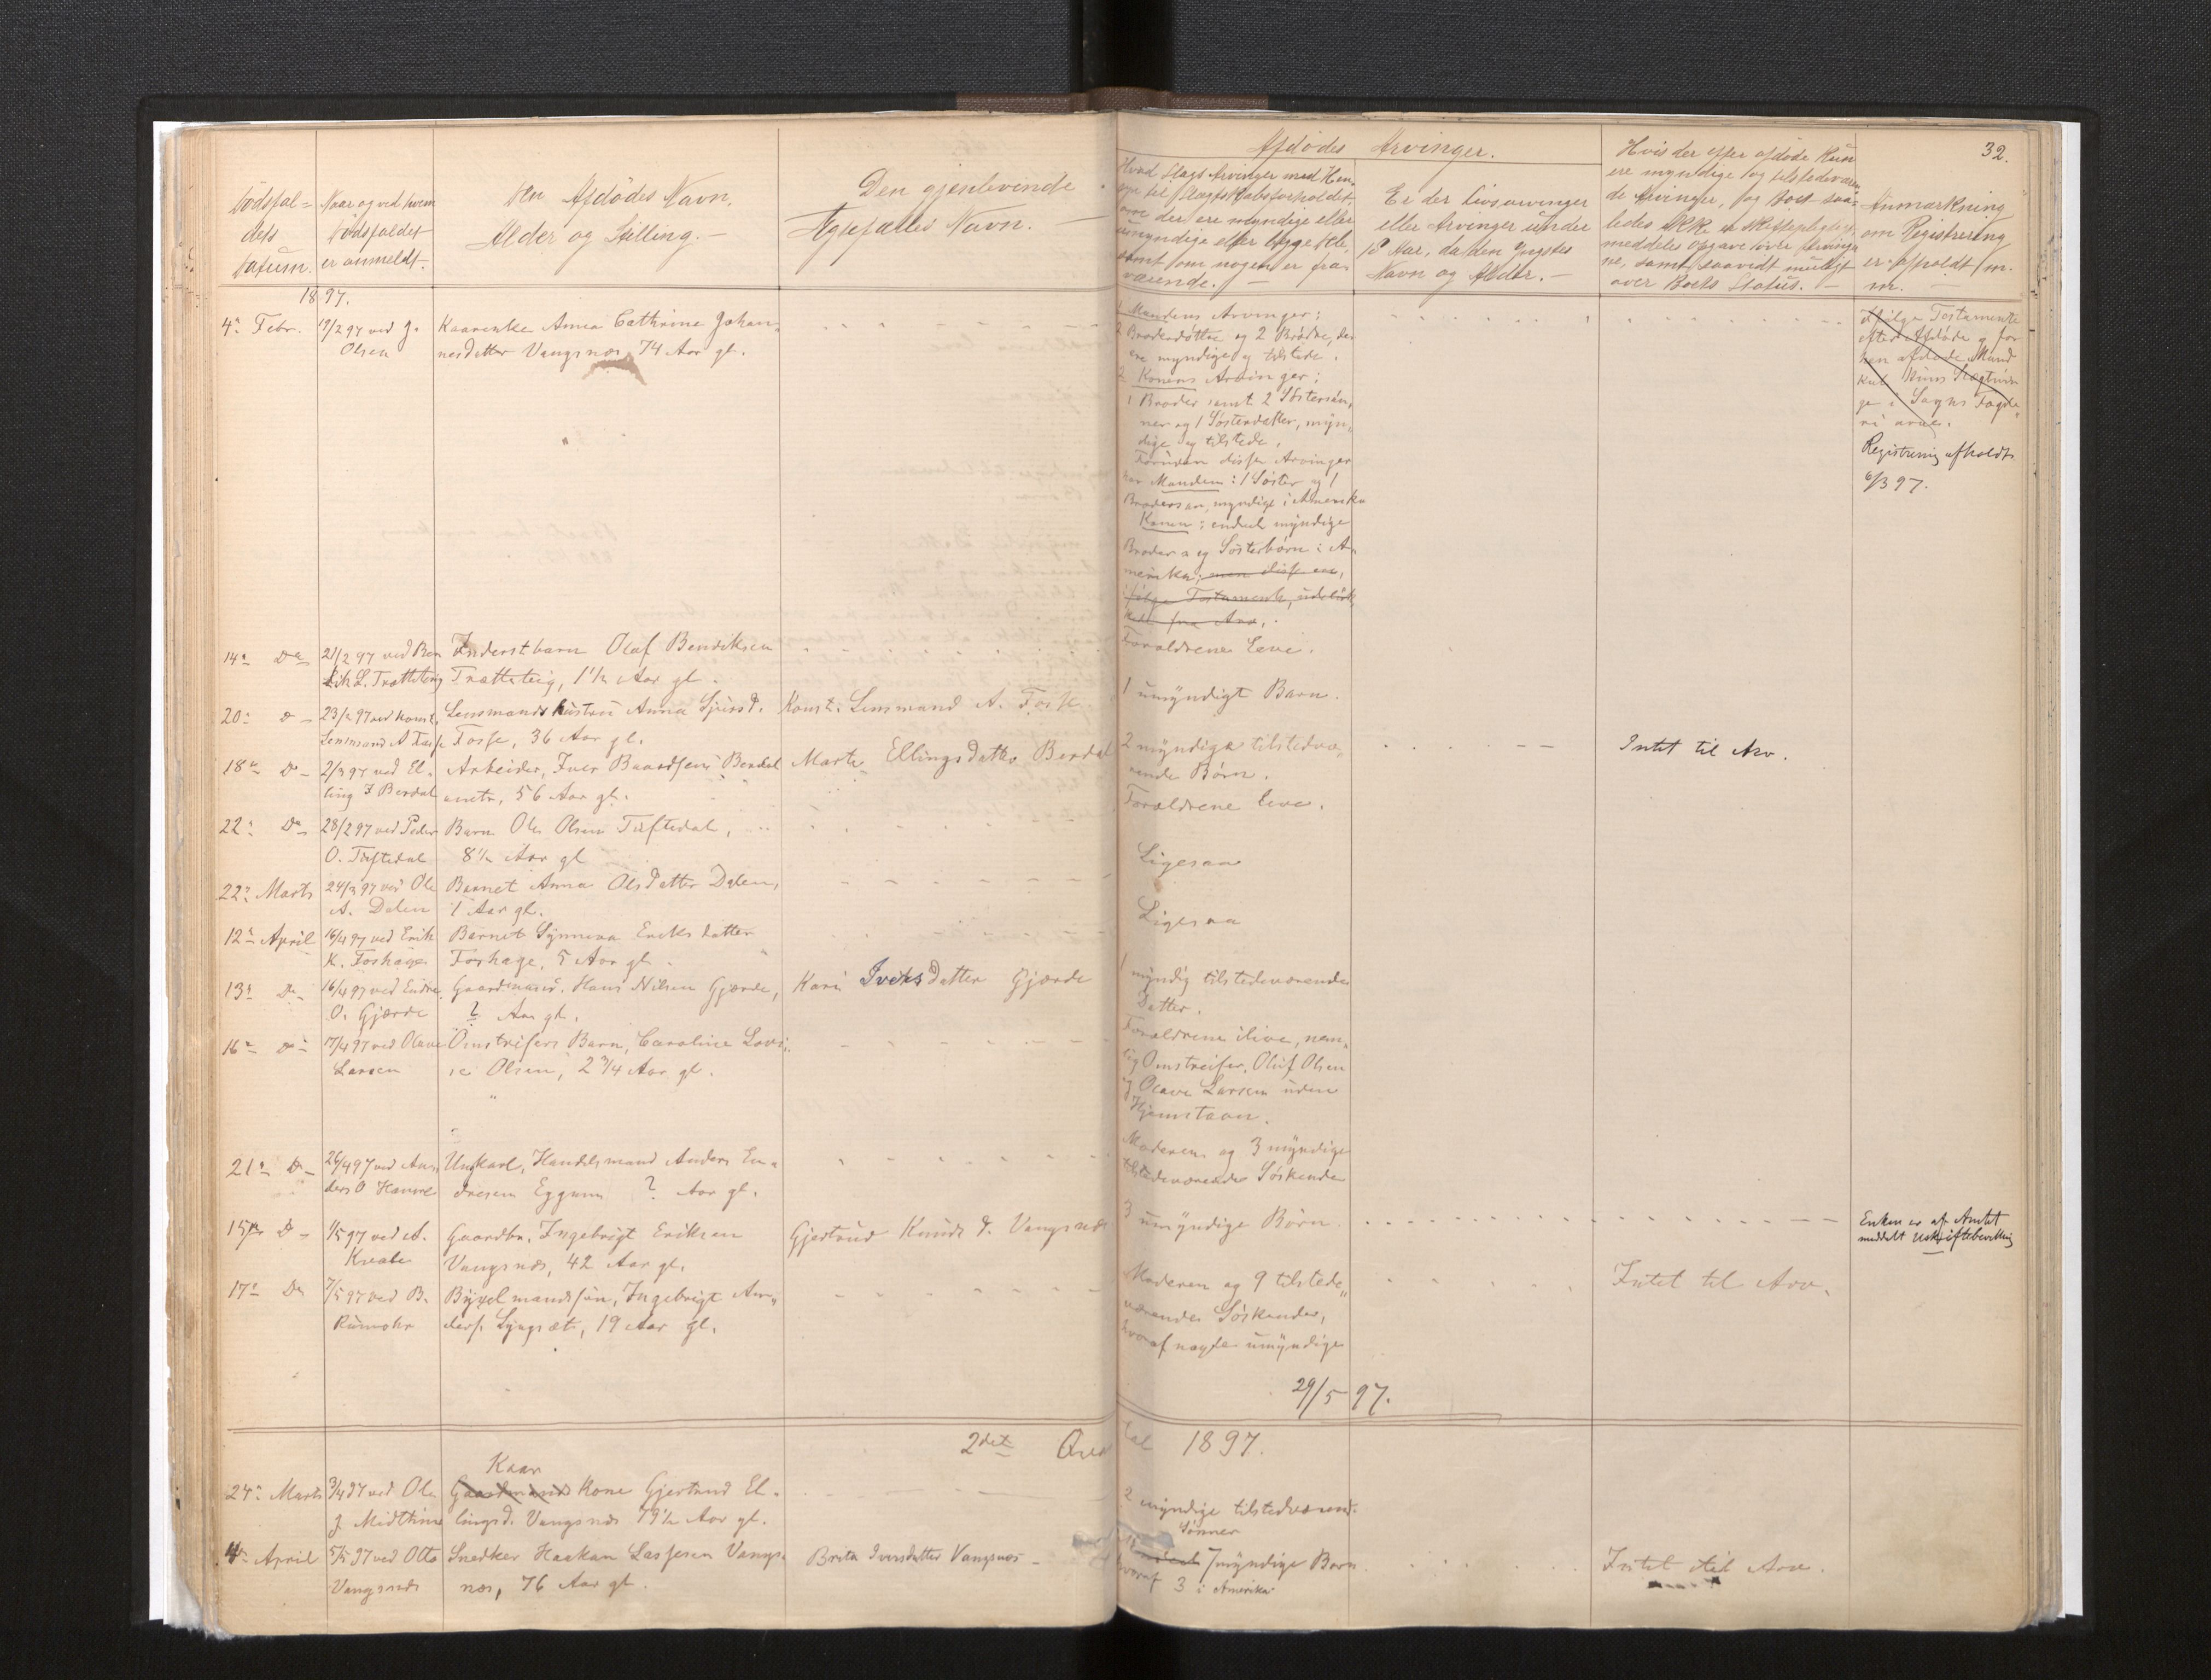 32.
Dödsfal-
dets
Datum.
Naar og ved hvem
Dödsfaldet
er anmeldt.
Den Afdödes Navn,
Alder og Stilling. –
Den gjenlevende
Ægtefælles Navn.
Afdödes Arvinger.
Hvad Slags Arvinger med Hen-
syn til Slægtskabsforholdet,
om de ere myndige eller
umyndige eller begge Dele,
samt om nogen er fra-
værende. –
Er der Livsarvinger
eller Arvinger under
18 Aar, da den Yngstes
Navn og Alder. –
Hvis der efter afdöde kun
ere myndige og tilstedeværen-
de Arvinger, og Boet saa-
ledes ikke er skiftepligtig,
meddeles Opgave over Arvinge
ne, samt saavidt muligt
over Boets Status. –
Anmærkning
om Registrering
er afholdt m.
m. –
1897.
4de Febr.
19/2 97 ved J.
Olsen
Kaarenke Anna Cathrine Johan-
nesdatter Vangsnæs, 74 Aar gl.
1 Mandens Arvinger:
2 Broderdöttre og 2 Brödre, der
ere myndige og tilstede.
2 Konens Arvinger:
1 Broder samt 2 Söstersön-
ner og 1 Sösterdatter, myn-
dige og tilstede.
Foruden disse Arvinger
har Manden: 1 Söster og 1
Brodersön, myndige i Amerika
Konen: endel myndige
Broder- og Sösterbörn i A-
merika, men disse ere,
ifölge Testamente, udeluk-
ket fra Arv.
Ifölge Testamente
efter Afdöde og for
hen afdöde Mand
kun Slægtnin
ge i Sogns Fogde-
ri arve.
Registrering afholdt
6/3 97.
14de Do
21/2 97 ved Ben
dik L. Trætteteig
Inderstbarn Olaf Bendiksen
Trætteteig, 1 1/2 Aar gl.
Forældrene leve.
20de Do
23/2 97 ved konst.
Lensmand A Fosse
Lensmandshustru Anna Sjursd.
Fosse, 36 Aar gl.
Konst. Lensmand A. Fosse
1 umyndigt Barn.
18de Do
2/3 97 ved El-
ling I Berdal
Arbeider, Iver Baardsen Berdal
omtr. 56 Aar gl.
Marte Ellingsdatter Berdal
2 myndige tilstedevæ-
rende Börn.
Intet til Arv.
22de Do
28/2 97 ved Peder
O. Tuftedal
Barn Ole Olsen Tuftedal,
8 1/2 Aar gl
Forældrene leve.
22de Marts
24/3 97 ved Ole
A. Dalen
Barnet Anna Olsdatter Dalen,
1 Aar gl.
Ligesaa
12te April
16/4 97 ved Erik
K. Foshage
Barnet Synneva Eriksdatter
Foshage, 5 Aar gl.
Ligesaa
13de Do
16/4 97 ved Endre
O. Gjærde
Gaardmand. Hans Nilsen Gjærde,
? Aar gl.
Kari Iversdatter Gjærde
1 myndig tilstedeværende
Datter.
16de Do
17/4 97 ved Olave
Larsen
Omstreifers Barn, Caroline Lovi-
se Olsen, 2 3/4 Aar gl.
Forældrene ilive, nem-
lig Omstreifer, Oluf Olsen
og Olave Larsen uden
Hjemstavn.
21de Do
26/4 97 ved An-
ders O Hamre
Ungkarl, Handelsmand Anders En-
dresen Eggum ? Aar gl.
Moderen og 3 myndige
tilstedeværende Söskende
15de Do
1/5 97 ved A.
Kvale
Gaardbr. Ingebrigt Eriksen
Vangsnæs, 42 Aar gl.
Gjertrud Knudsd. Vangsnæs
3 umyndige Börn.
Enken er af Amtet
meddelt Uskiftebevilling
17de Do
7/5 97 ved B.
Rumohr
Bygselmandssön, Ingebrigt An-
ders. Lyngsæt, 19 Aar gl.
Moderen og 9 tilstede-
værende Söskende,
hvoraf nogle umyndige
Intet til Arv.
29/5 97.
2det Qvartal 1897.
24de Marts
3/4 97 ved Ole
J. Midttun
Kaar
Gaardmands Kone Gjertrud El-
lingsd. Vangsnæs 79 1/2 Aar gl.
2 myndige tilstedeværend.
Sönner
4de April
5/5 97 ved Otto
Vangsnæs
Snedker Haakon Lassesen Vangs-
næs, 76 Aar gl.
Brita Iversdatter Vangsnæs –
7 myndige Börn
hvoraf 3 i Amerika
Intet til Arv.